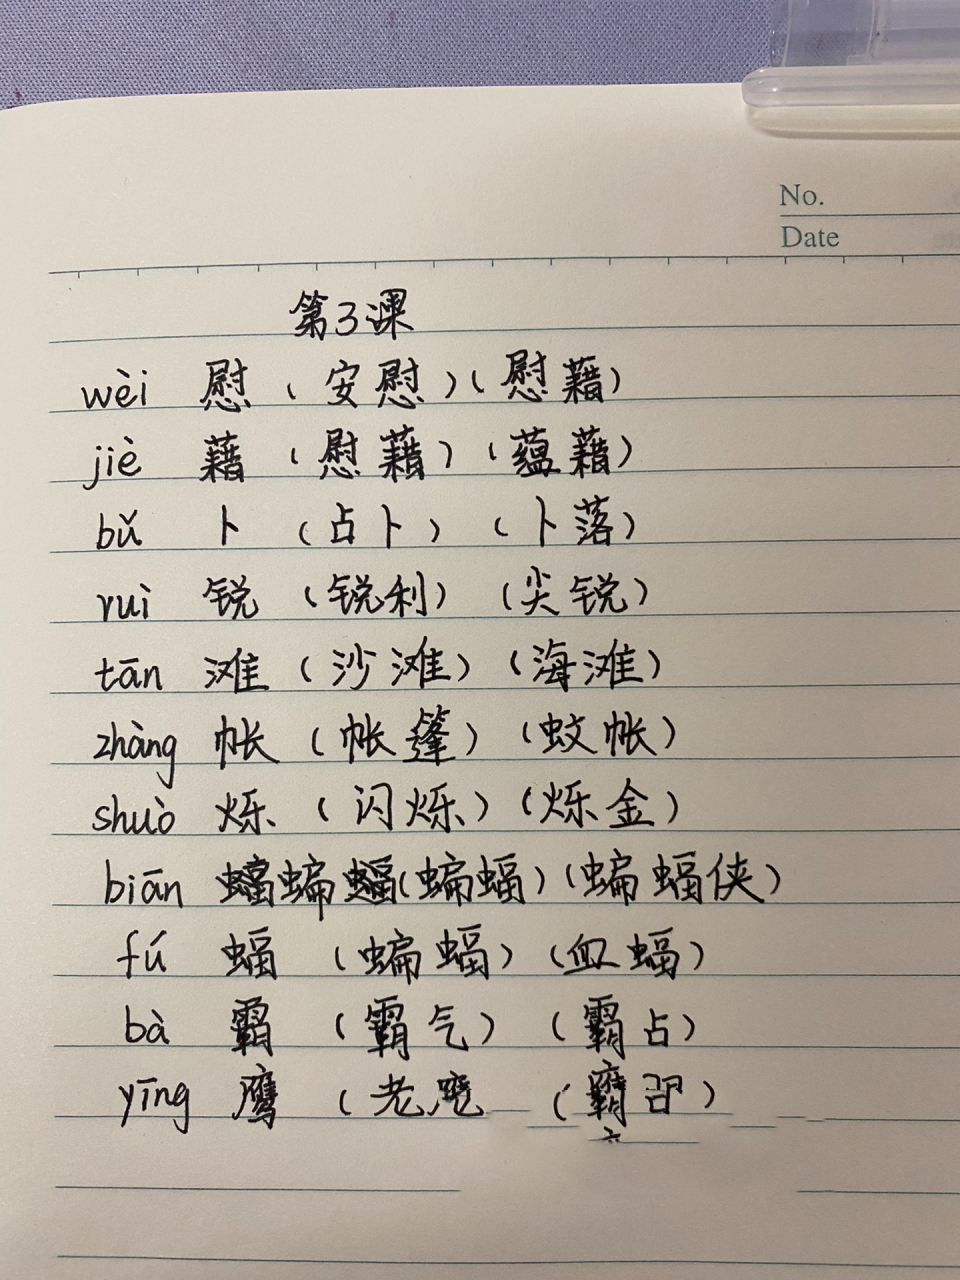 No.
Date
第3课
wèi 慰（安慰）（慰藉）
jiè 藉（慰藉）（蕴藉）
bǔ 卜（占卜）（卜落）
ruì 锐（锐利）（尖锐）
tān 滩（沙滩）（海滩）
zhàng 帐（帐篷）（蚊帐）
shuò 烁（闪烁）（烁金）
biān 蝙（蝙蝠）（蝙蝠侠）
fú 蝠（蝙蝠）（血蝠）
bà 霸（霸气）（霸占）
yīng 鹰（老